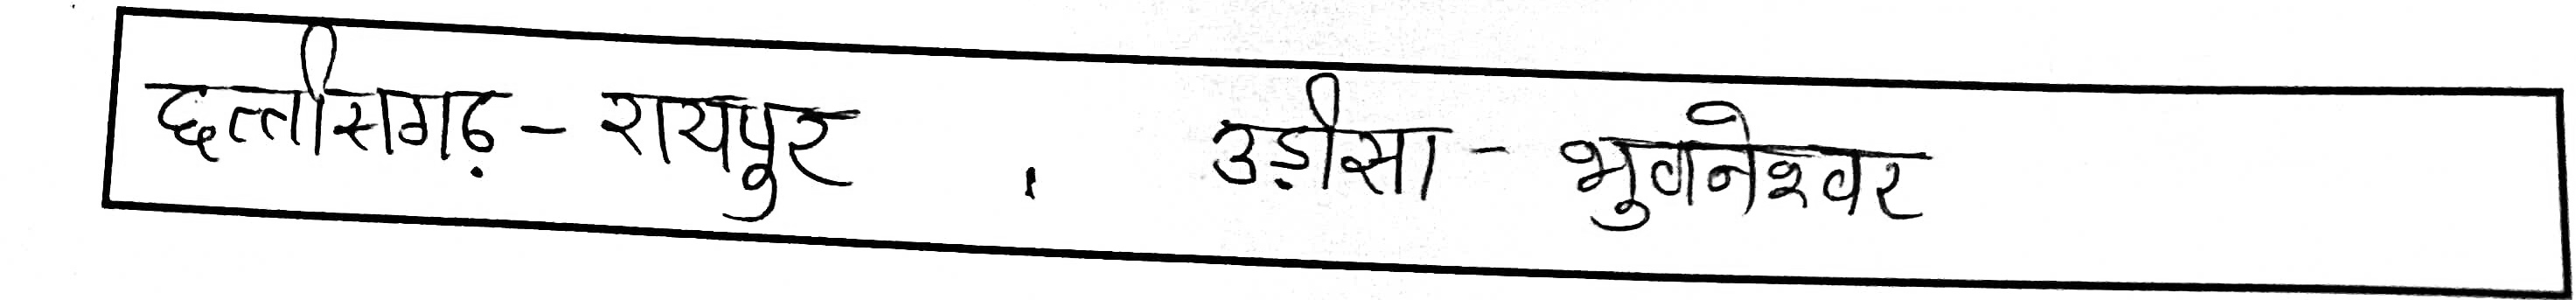 छत्तीसगढ़ - रायपुर , उड़ीसा - भुवनेश्वर